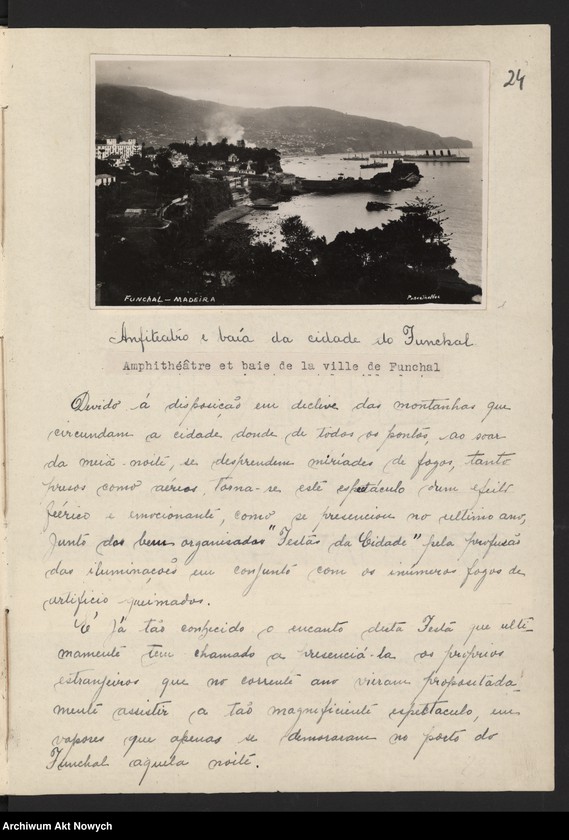 24
FUNCHAL – MADEIRA
Anfiteatro e baía da cidade do Funchal
Amphithéâtre et baie de la ville de Funchal
Devido á disposição em declive das montanhas que
circundam a cidade, donde de todos os pontos, ao soar
da meia-noite, se desprendem miríades de fogos, tanto
presos como aéreos, torna-se este espetáculo dum efeito
feérico e emocionante, como se presenciou no ultimo ano,
junto das bem organisadas "Festas da Cidade", pela profusão
das iluminações em conjunto com os inúmeros fogos de
artifício queimados.
É já tão conhecido o encanto desta Festa que ulti-
mamente tem chamado a presenciá-la os próprios
estranjeiros que no corrente ano vieram propositada-
mente assistir a tão magnificiente espetaculo, em
vapores que apenas se demoraram no porto do
Funchal aquela noite.
Archiwum Akt Nowych